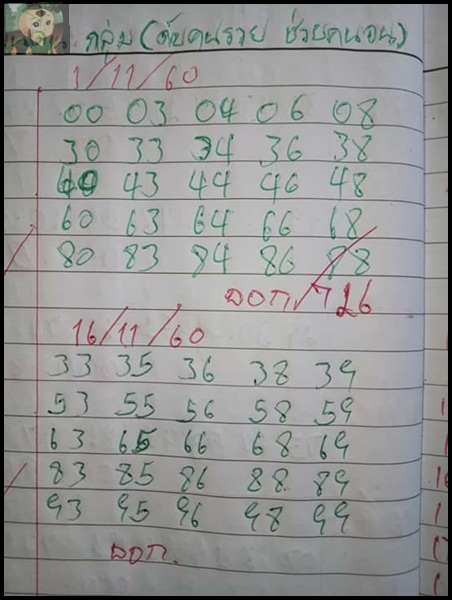 กลุ่ม (ดับคนรวย ช่วยคนจน)
1/11/60
00 03 04 06 08
30 33 34 36 38
40 43 44 46 48
60 63 64 66 68
80 83 84 86 88
ออก 726
16/11/60
33 35 36 38 39
53 55 56 58 59
63 65 66 68 69
83 85 86 88 89
93 95 96 98 99
ออก.